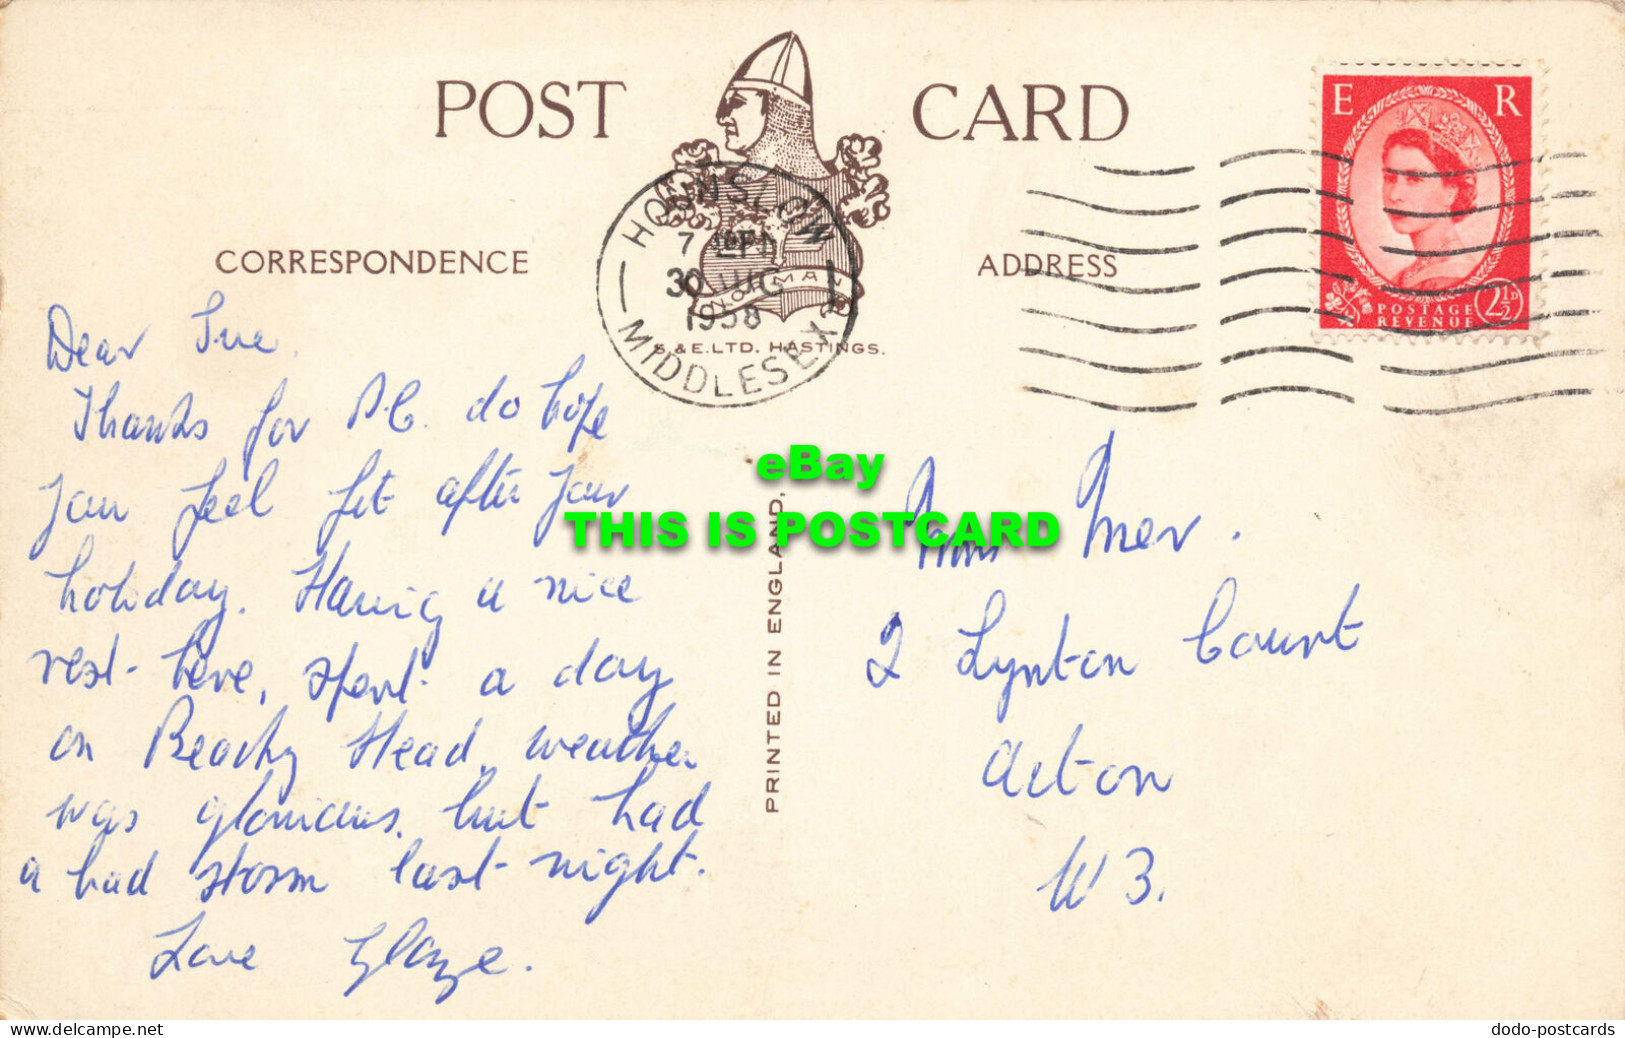 POST CARD
HOUNSLOW
7
30 AUG
1958
MIDDLESEX
NORMAN
S. & E. LTD. HASTINGS.
CORRESPONDENCE
ADDRESS
E R
POSTAGE
REVENUE
2½D
Dear Sue,
Thanks for P.C. do hope
you feel fit after your
holiday. Having a nice
rest here, spent a day
on Beachy Head, weather
was glorious, but had
a bad storm last night.
Love
PRINTED IN ENGLAND.
eBay
THIS IS POSTCARD
2 Lynton Court
Acton
W3.
delcampe.net
dodo-postcards